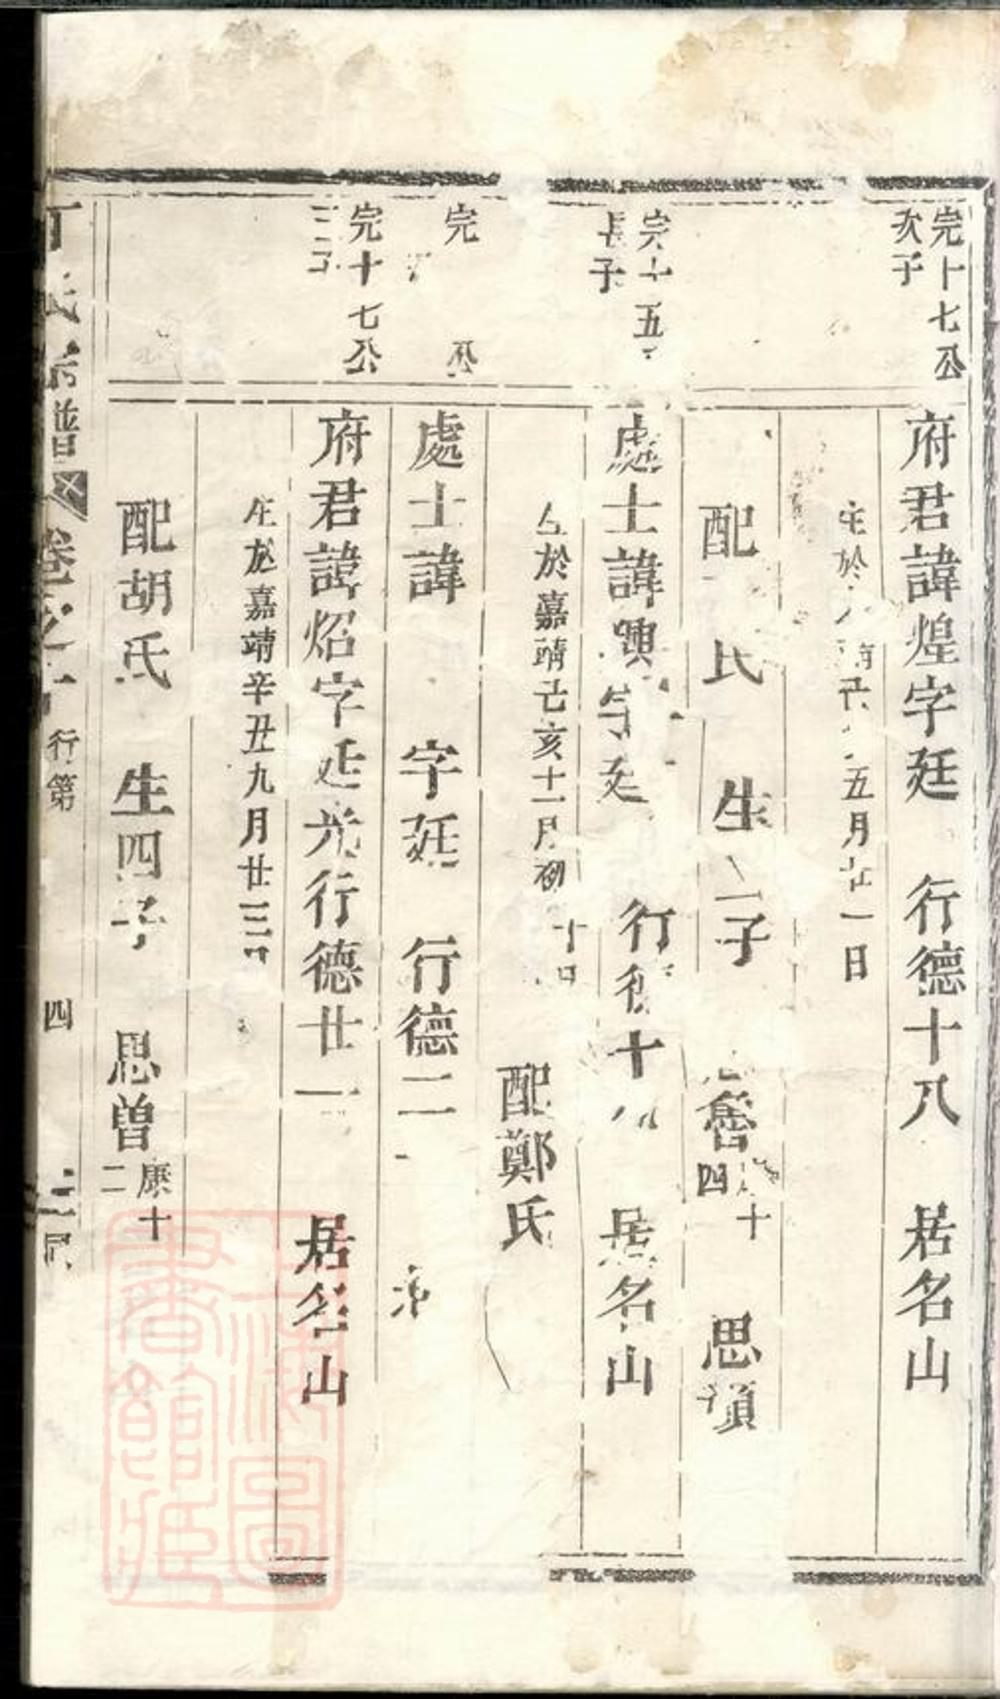 完十七公
次子
府君諱煌字廷 行德十八 居名山
生於 靖 五月廿一日
配 氏 生 子 魯 十四 思項
完十五
長子
處士諱 字廷 行德十 居名山
生於嘉靖己亥十一月初 十四
配鄭氏
完 公
處士諱 字廷 行德二
完十七公
三子
府君諱炤字廷光行德廿一 居名山
生於嘉靖辛丑九月廿三日
配胡氏 生四子 思曾 康十二
丁氏宗譜 卷之十 行第 四
上海圖書館藏